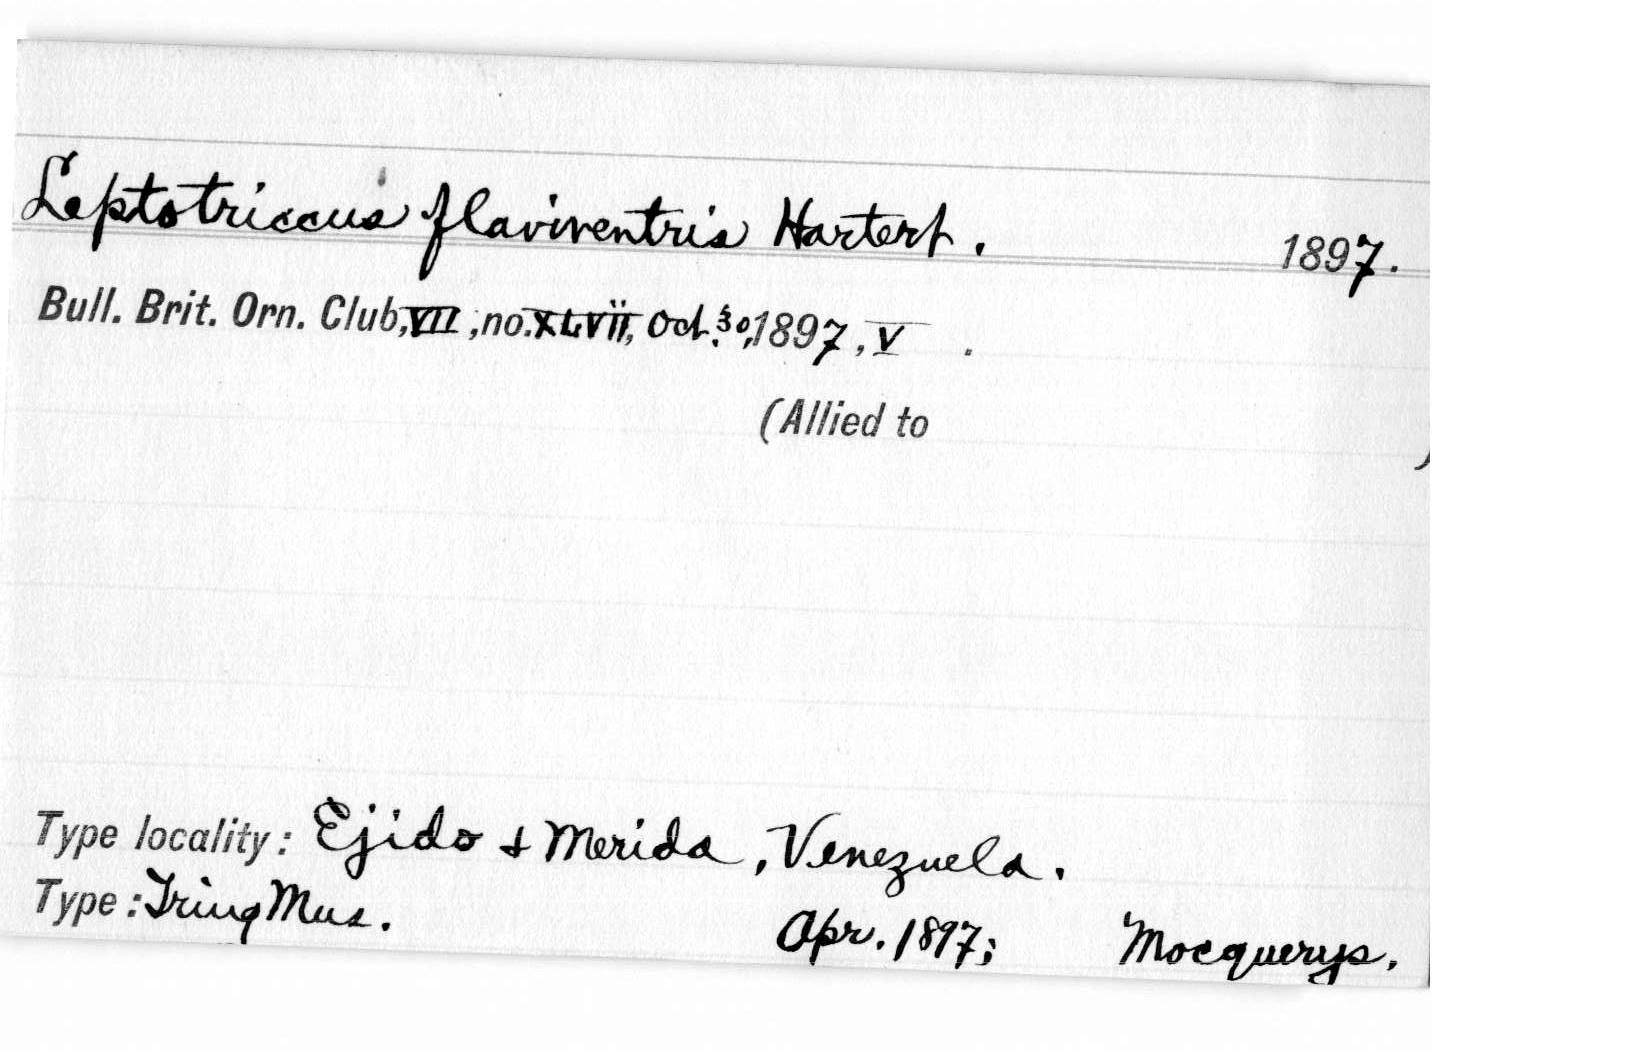 Leptotriccus flaviventris Hartert. 1897.
Bull. Brit. Orn. Club, VII, no. XLVii, Oct. 30, 1897, V .
(Allied to )
Type locality: Ejido & Merida, Venezuela.
Type: Tring Mus. Apr. 1897; Mocquerys.